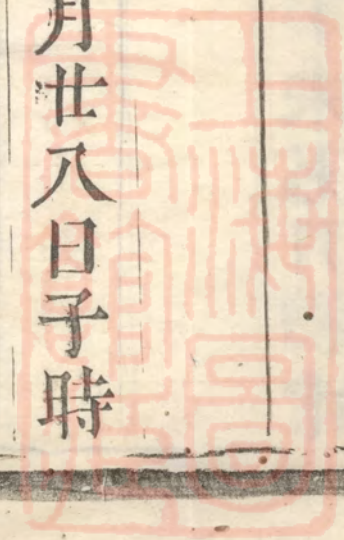 月廿八日子時
上海圖
書館藏